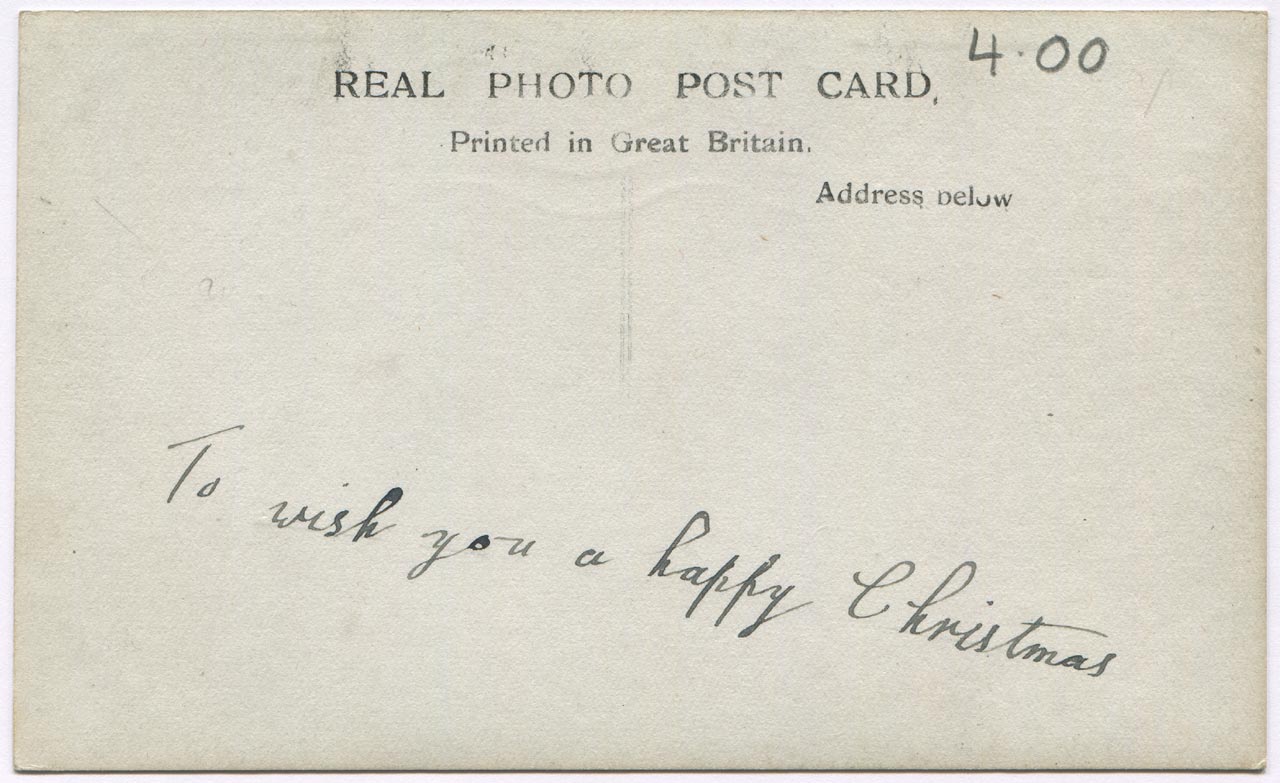 4.00
REAL PHOTO POST CARD.
Printed in Great Britain.
Address below
To wish you a happy Christmas